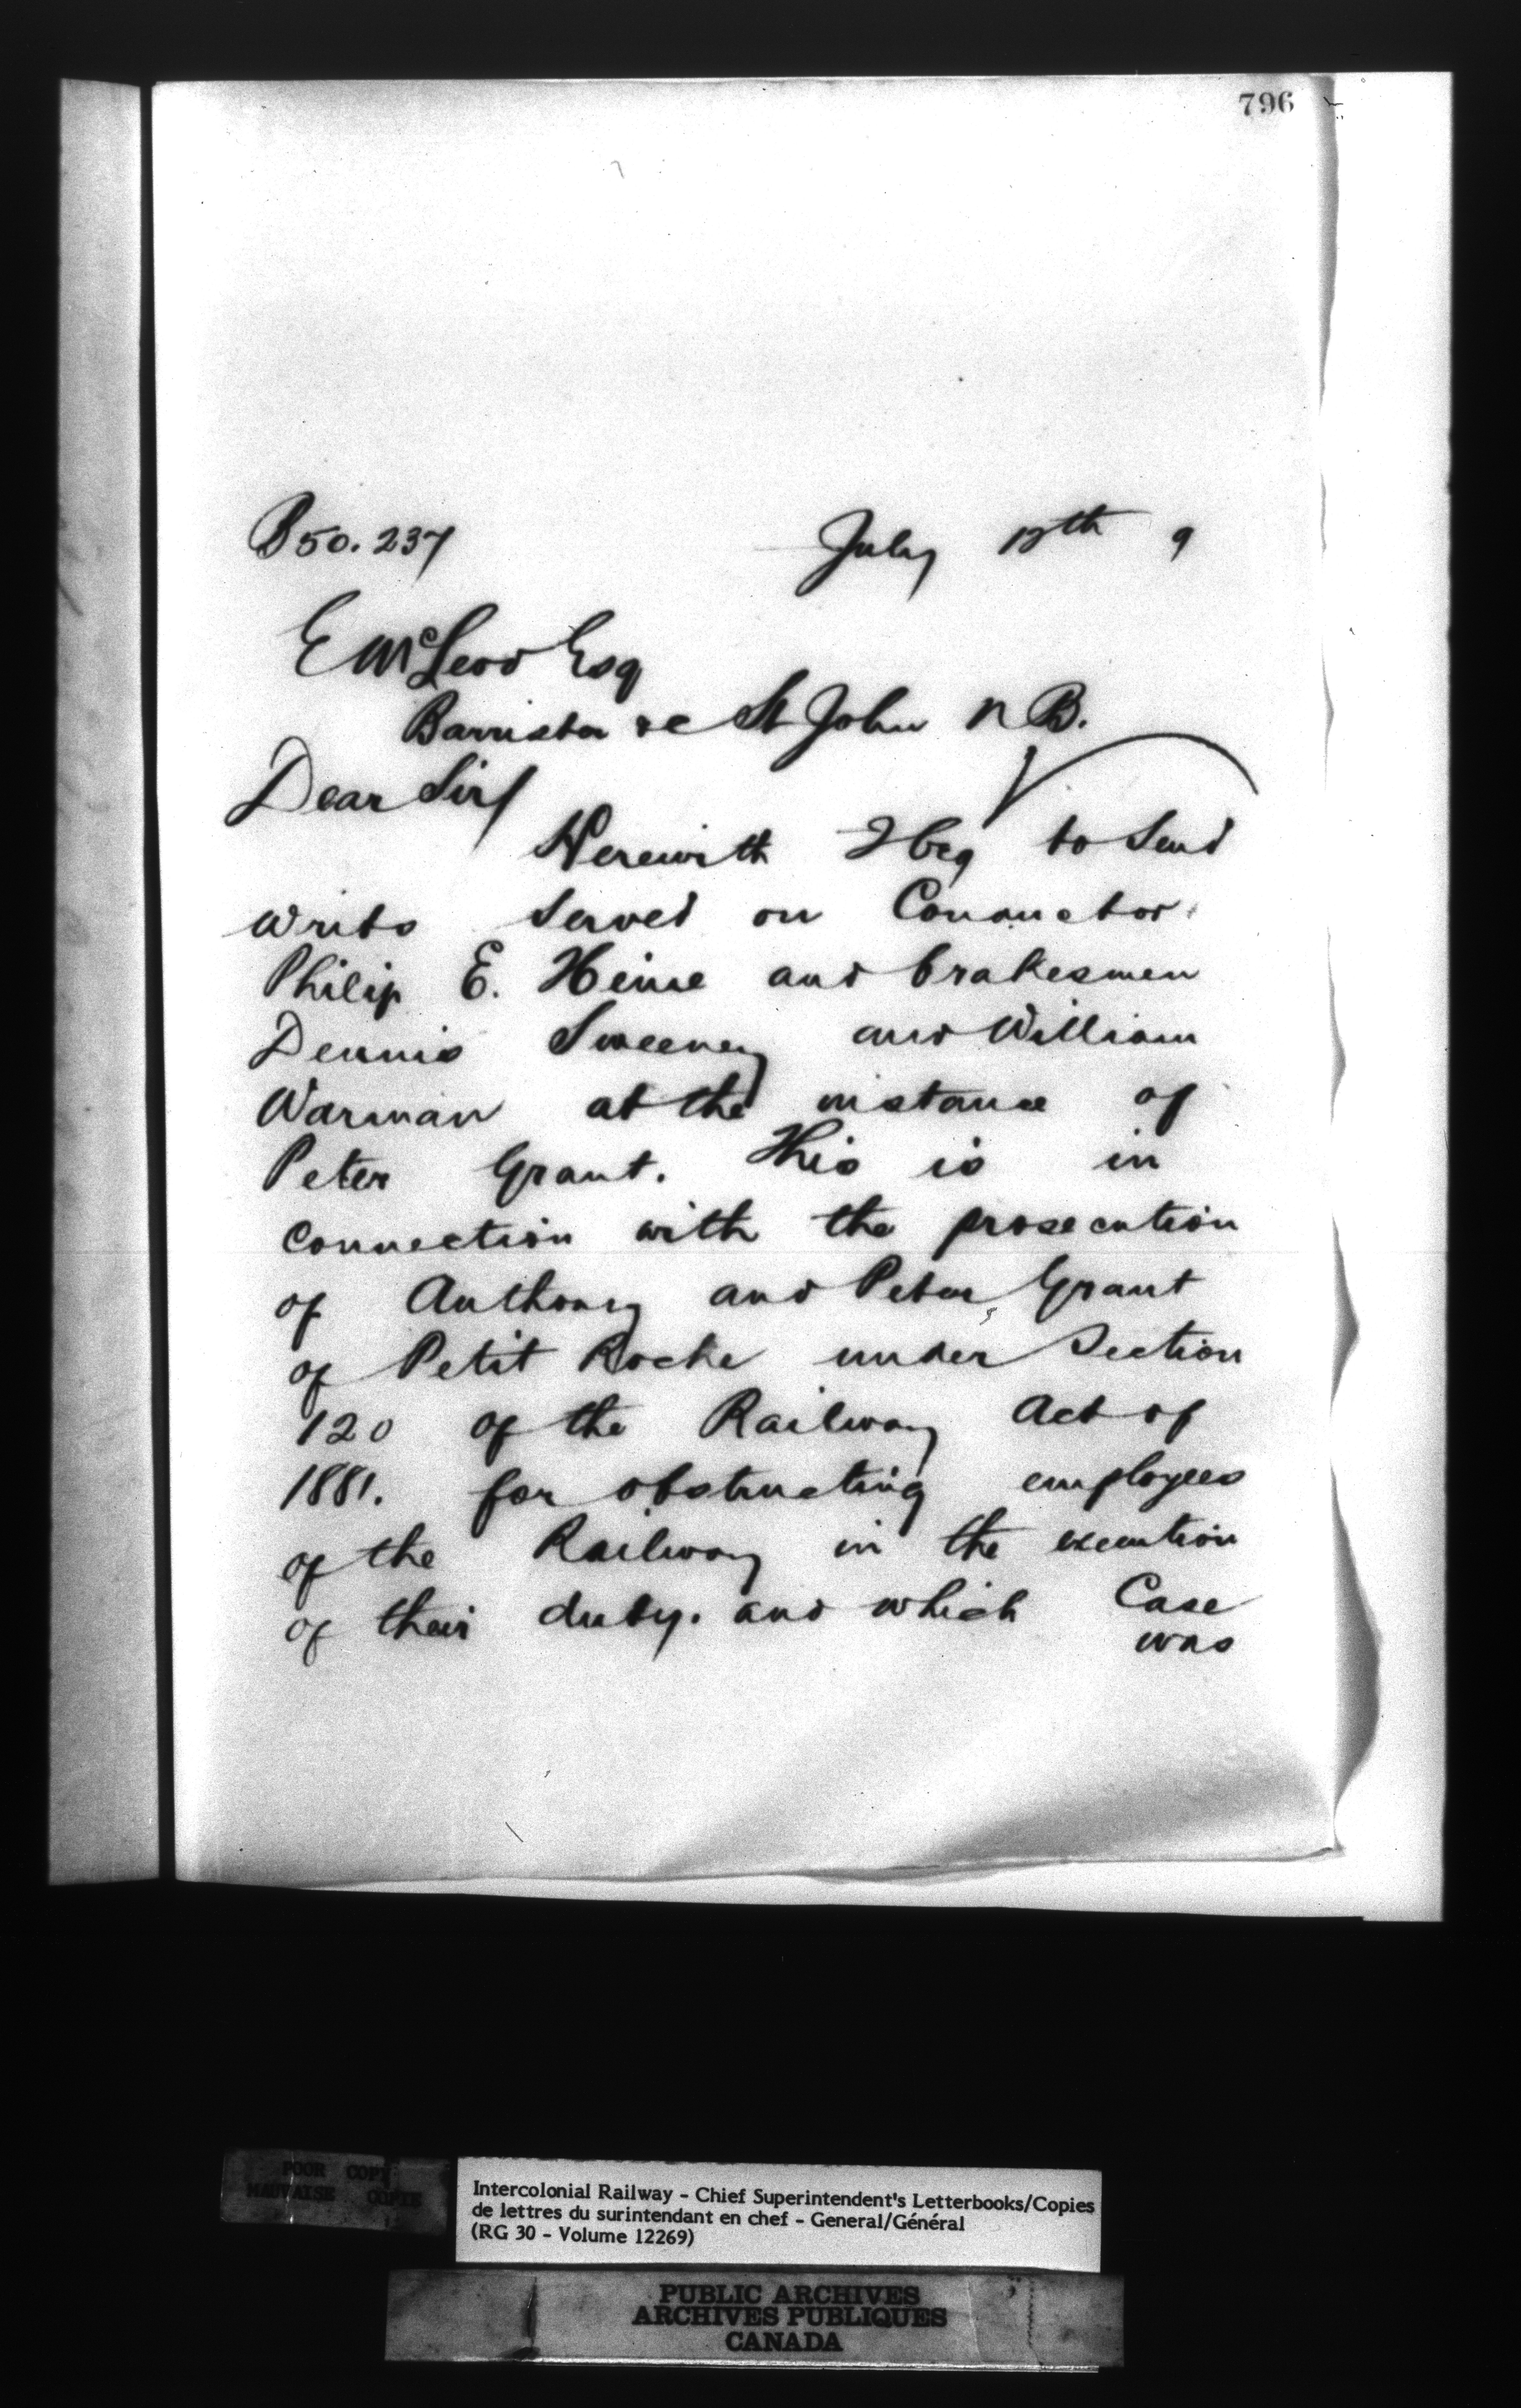 796
B50.237 July 12th 9
E McLeod Esq
Barrister &c St John N B.
Dear Sir/
Herewith I beg to send
writs served on Conductor
Philip E. Heine and brakesmen
Dennis Sweeney and William
Warman at the instance of
Peter Grant. This is in
connection with the prosecution
of Anthony and Peter Grant
of Petit Roche under Section
120 of the Railway Act of
1881. for obstructing employees
of the Railway in the execution
of their duty. and which Case
was
POOR COPY
MAUVAISE COPIE
Intercolonial Railway - Chief Superintendent's Letterbooks/Copies
de lettres du surintendant en chef - General/Général
(RG 30 - Volume 12269)
PUBLIC ARCHIVES
ARCHIVES PUBLIQUES
CANADA